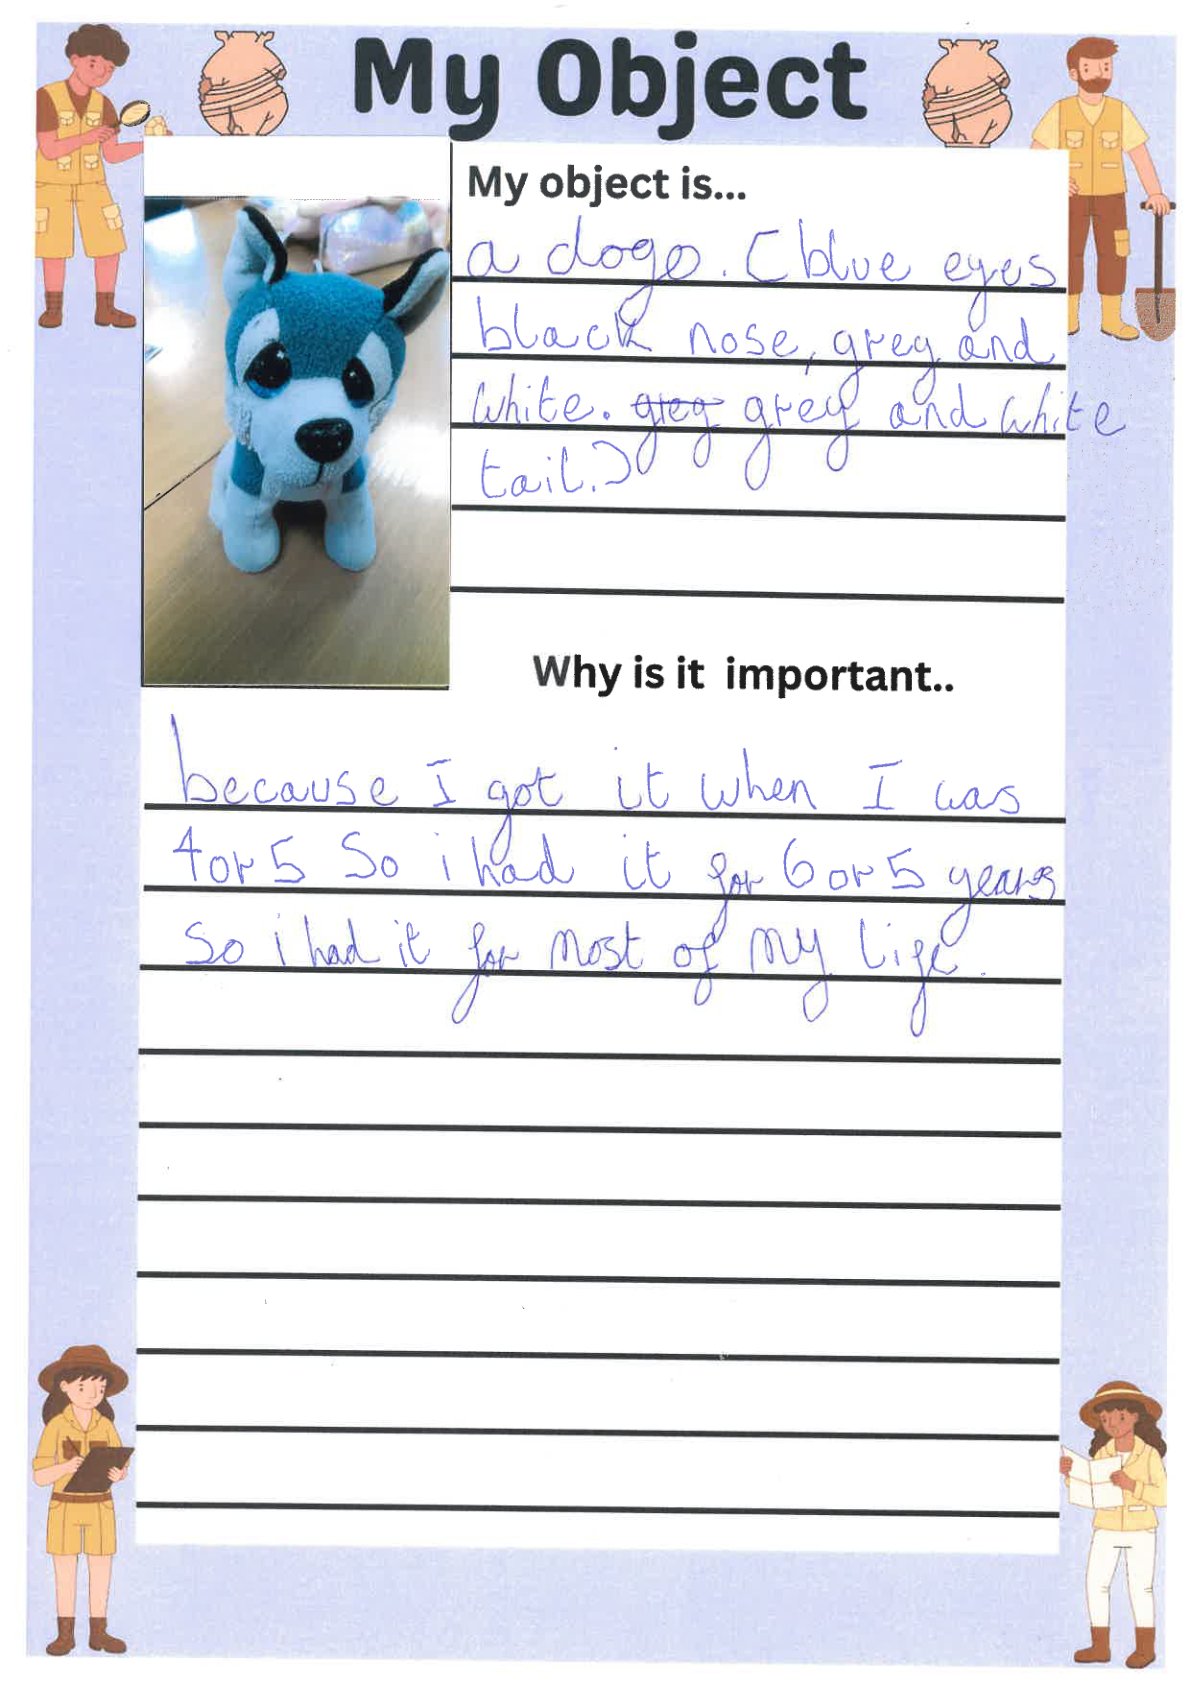 My Object
My object is...
a dogo. (blue eyes
black nose, grey and
white. grey grey and white
tail.)
Why is it important..
because I got it when I was
4 or 5 So i had it for 6 or 5 years
So i had it for most of my life.